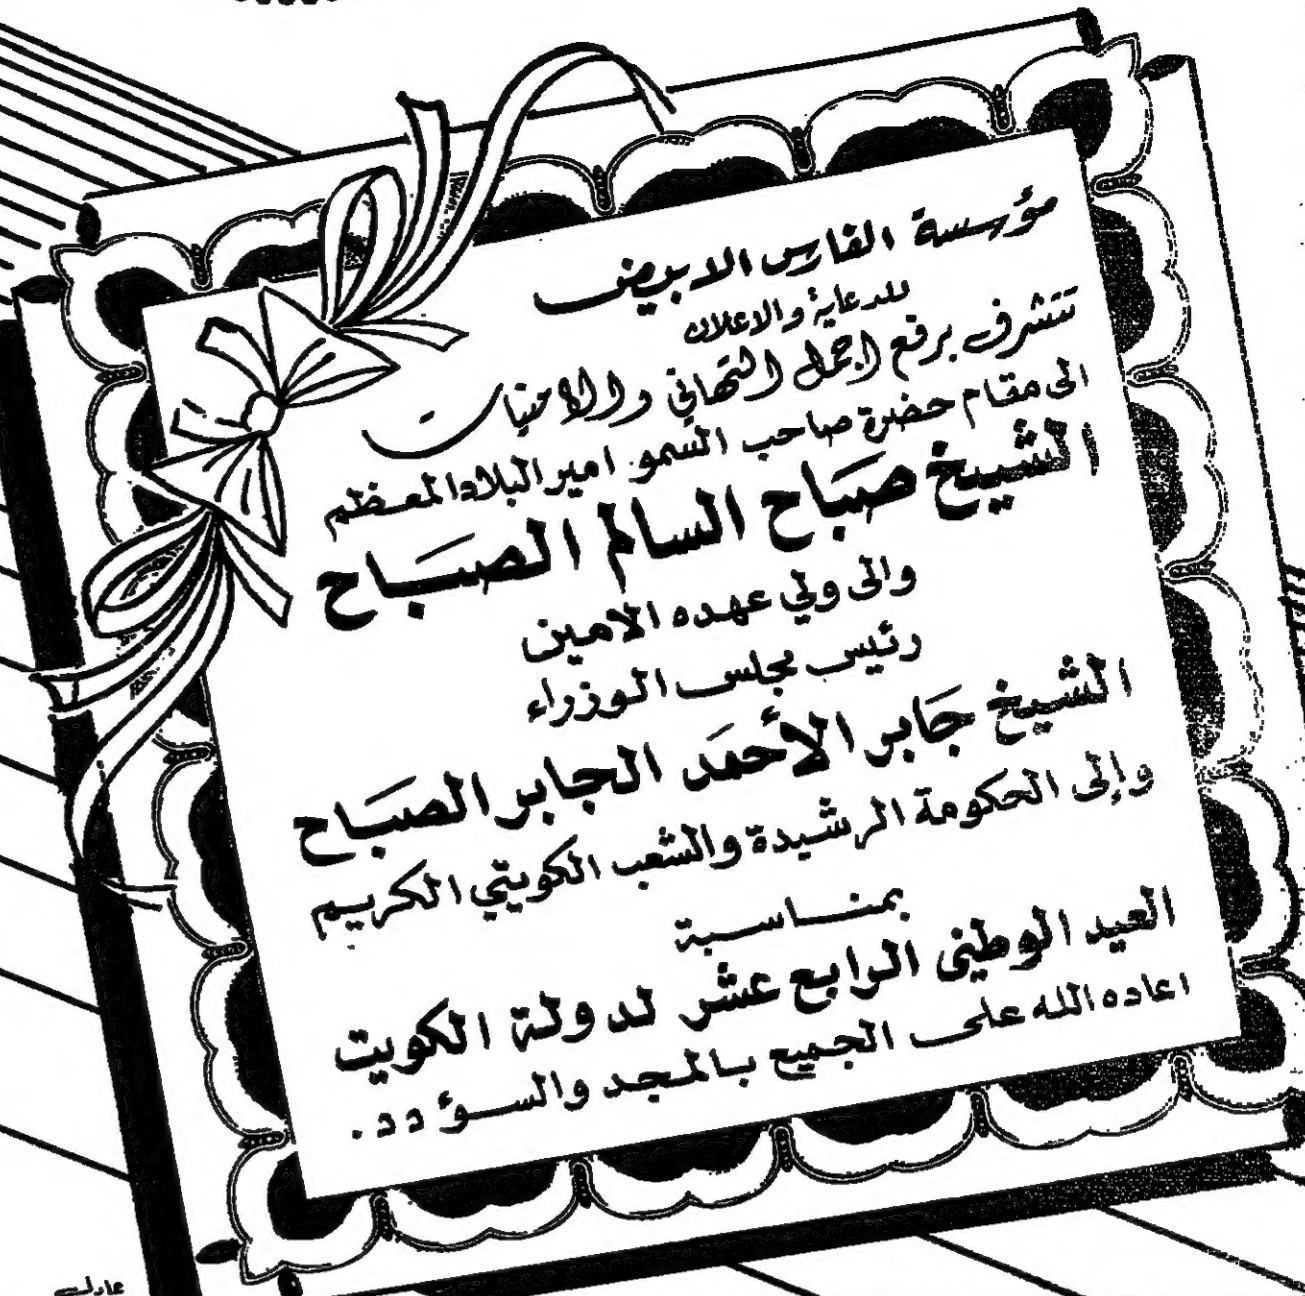 مؤسسة الفارس الابيض
للدعاية والاعلان
تتشرف برفع اجمل التهاني والامنيات
الى مقام حضرة صاحب السمو امير البلاد المعظم
الشيخ صباح السالم الصباح
والى ولي عهده الامين
رئيس مجلس الوزراء
الشيخ جابر الأحمد الجابر الصباح
وإلى الحكومة الرشيدة والشعب الكويتي الكريم
بمناسبة
العيد الوطني الرابع عشر لدولة الكويت
اعاده الله على الجميع بالمجد والسؤدد.
عادل